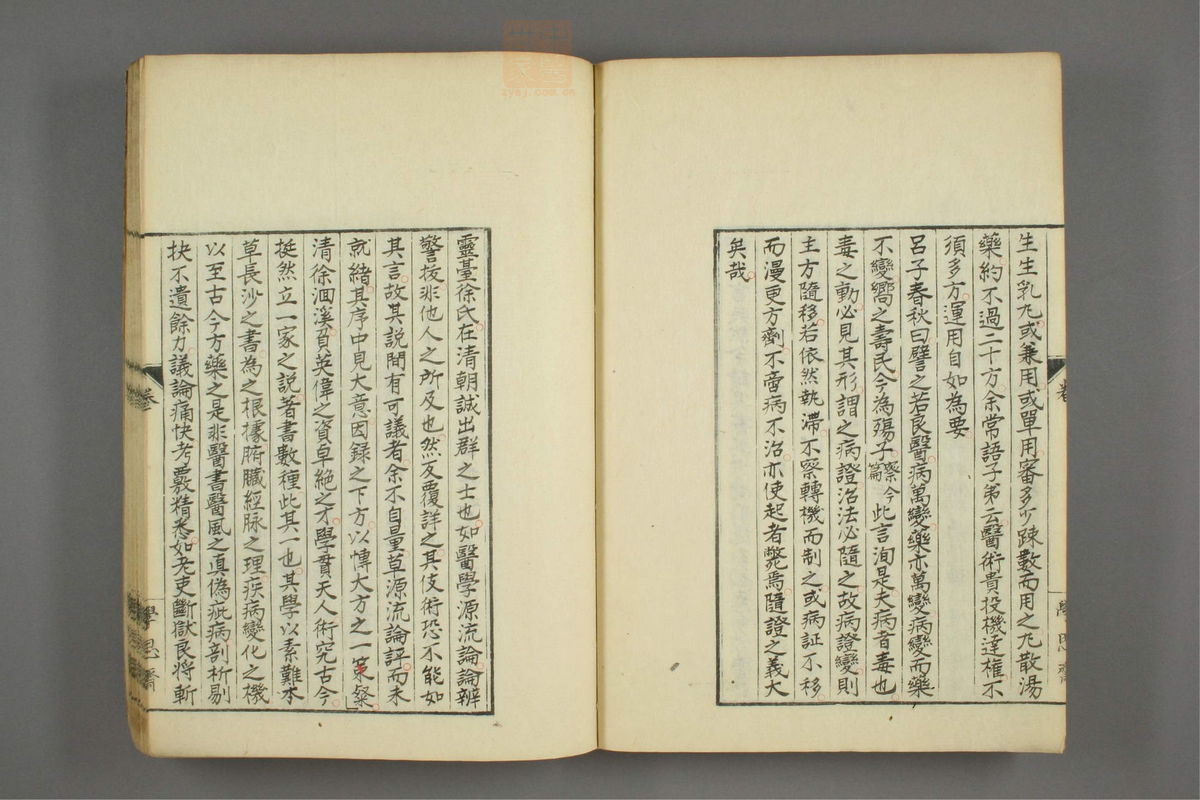 生生乳丸或兼用或單用審多少疎數而用之丸散湯
藥約不過二十方余常語子弟云醫術貴投機達權不
須多方運用自如為要
呂子春秋曰譬之若良醫病萬變藥亦萬變病變而藥
不變嚮之壽民今為殤子察今篇此言洵是夫病者毒也
毒之動必見其形謂之病證治法必隨之故病證變則
主方隨移若依然執滯不察轉機而制之或病証不移
而漫更方劑不啻病不治亦使起者斃焉隨證之義大
矣哉
靈臺徐氏在清朝誠出群之士也如醫學源流論論辨
警拔非他人之所及也然反覆詳之其伎術恐不能如
其言故其說間有可議者余不自量草源流論評而未
就緒其序中見大意因録之下方以博大方之一粲
清徐洄溪負英偉之資卓絶之才學貫天人術究古今
挺然立一家之説著書數種此其一也其學以素難本
草長沙之書為之根據腑臟經脉之理疾病變化之機
以至古今方藥之是非醫書醫風之真偽疵病剖析剔
抉不遺餘力議論痛快考覈精悉如老吏斷獄良將斬
卷
學思齋
學思齋
zysj.com.cn